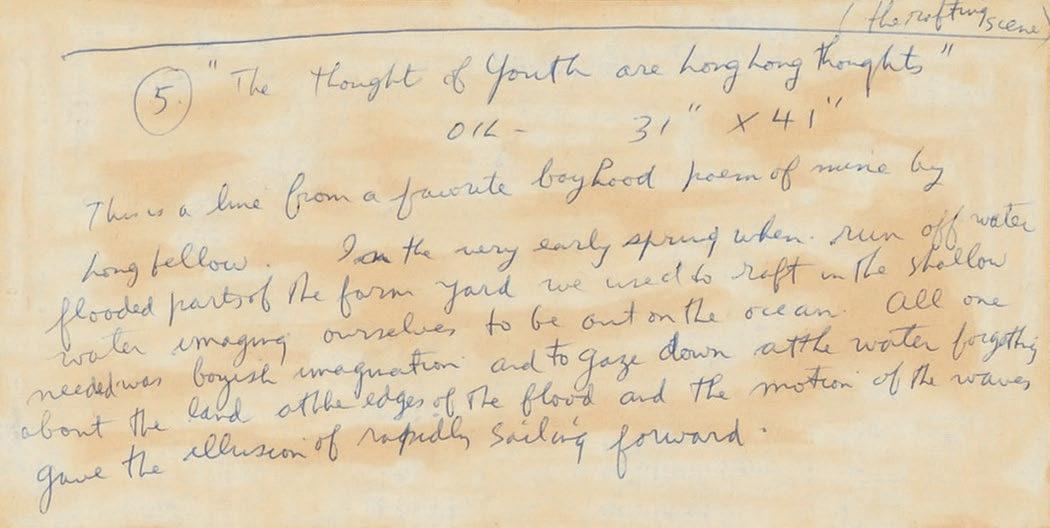 (the rafting scene)
5. "The thought of Youth are long long thoughts"
OIL - 31" x 41"
This is a line from a favorite boyhood poem of mine by
Longfellow. In the very early spring when run off water
flooded parts of the farm yard we used to raft in the shallow
water imaging ourselves to be out on the ocean. All one
needed was boyish imagination and to gaze down at the water forgetting
about the land at the edges of the flood and the motion of the waves
gave the illusion of rapidly sailing forward.